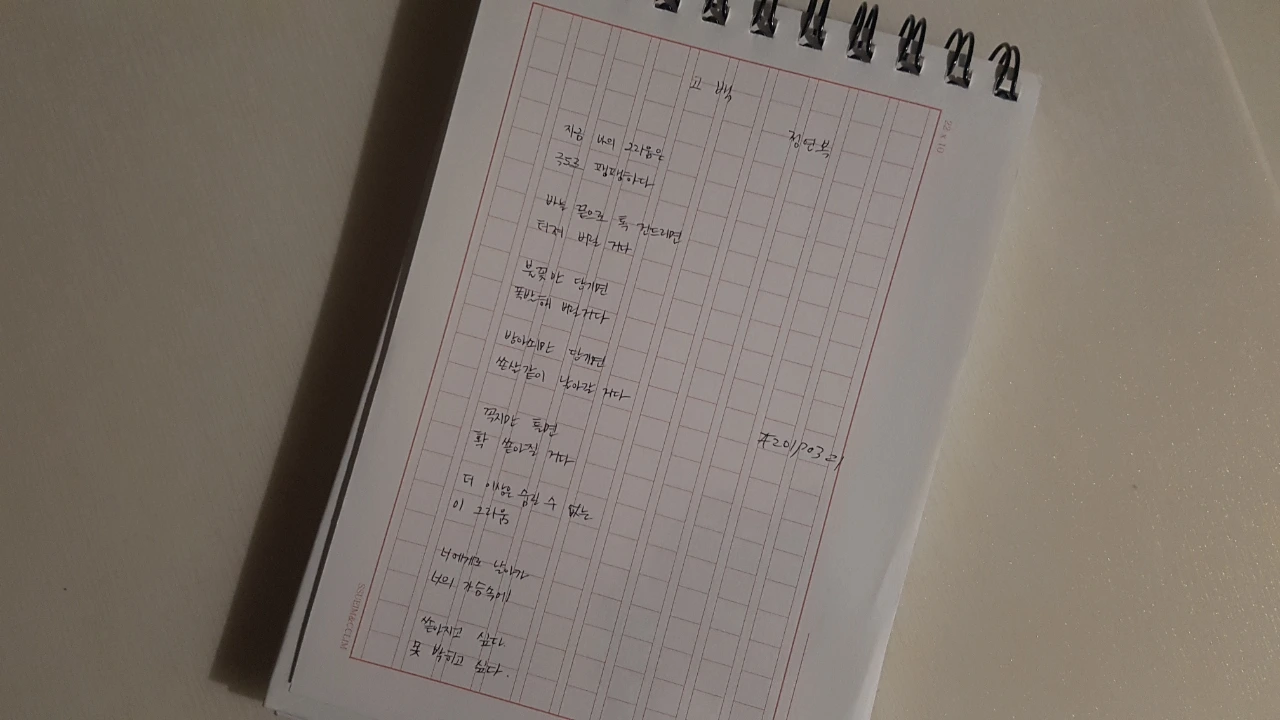 고 백
정연복
지금 나의 그리움은
극도로 팽팽하다
바늘 끝으로 톡 건드리면
터져 버릴 거다
불꽃만 당기면
폭발해 버릴거다
방아쇠만 당기면
쏜살같이 날아갈 거다
꼭지만 틀면
확 쏟아질 거다
더 이상은 숨길 수 없는
이 그리움
너에게로 날아가
너의 가슴속에
쏟아지고 싶다.
못 박히고 싶다.
#20190321
22 x 10